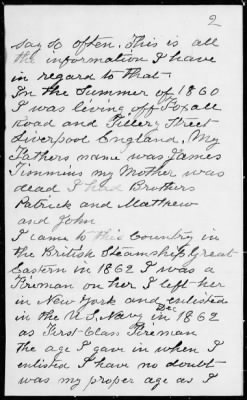 2
say so often. This is all
the information I have
in regard to that
In the Summer of 1860
I was living off Foxall
Road and Tillery Street
Liverpool England. My
Fathers name was James
Timmins my Mother was
dead I had Brothers
Patrick and Matthew
and John
I came to this Country in
the British Steamship Great
Eastern in 1862 I was a
Fireman on her I left her
in New York and enlisted
in the U.S. Navy in Dec 1862
as First-Class Fireman
the age I gave in when I
enlisted I have no doubt
was my proper age as I